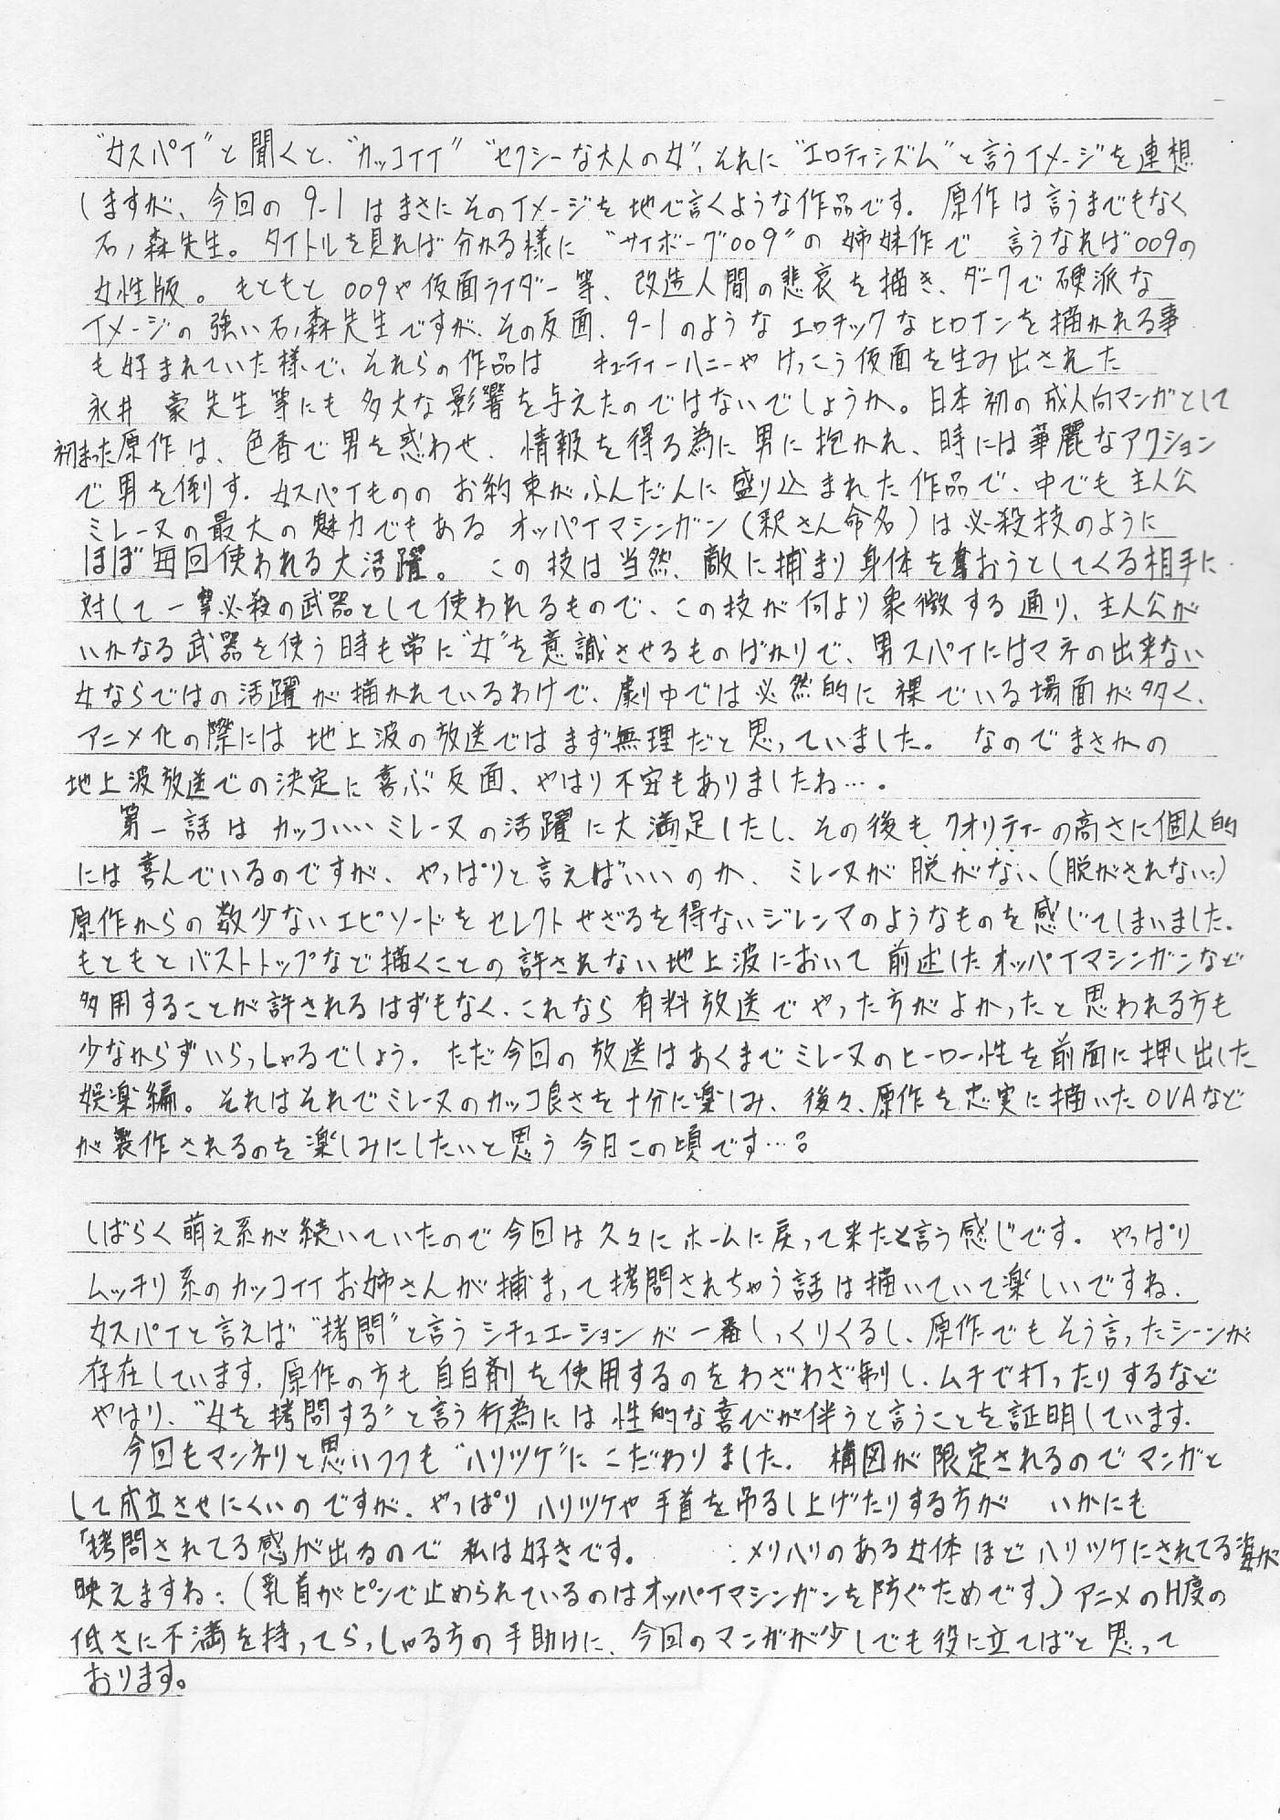 "女スパイ"と聞くと、"カッコイイ" "セクシーな大人の女"、それに"エロティシズム"と言うイメージを連想
しますが、今回の 9-1 はまさにそのイメージを地で言くような作品です。原作は言うまでもなく
石ノ森先生。タイトルを見れば分かる様に "サイボーグ009"の 姉妹作で 言うなれば009の
女性版。もともと 009や仮面ライダー等、改造人間の悲哀を描き、ダークで硬派な
イメージの強い石ノ森先生ですが、その反面、9-1のような エロチックなヒロインを描かれる事
も好まれていた様で、それらの作品は キューティーハニーや けっこう仮面を生み出された
永井 豪先生等にも 多大な影響を与えたのではないでしょうか。日本初の成人向マンガとして
初まった原作は、色香で男を惑わせ、情報を得る為に男に抱かれ、時には華麗なアクション
で男を倒す、女スパイものの お約束がふんだんに盛り込まれた作品で、中でも主人公
ミレーヌの最大の魅力でもある オッパイマシンガン(釈さん命名)は必殺技のように
ほぼ毎回使われる大活躍。この技は当然、敵に捕まり身体を奪おうとしてくる相手に
対して一撃必殺の武器として使われるもので、この技が何より象徴する通り、主人公が
いかなる武器を使う時も常に"女"を意識させるものばかりで、男スパイにはマネの出来ない
女ならではの活躍が描かれているわけで、劇中では必然的に裸でいる場面が多く、
アニメ化の際には地上波の放送ではまず無理だと思っていました。なのでまさかの
地上波放送での決定に喜ぶ反面、やはり不安もありましたね…。
第一話は カッコいい ミレーヌの活躍に大満足したし、その後も クオリティーの高さに個人的
には喜んでいるのですが、やっぱりと言えばいいのか、ミレーヌが脱がない(脱がされない)
原作からの数少ないエピソードをセレクトせざるを得ないジレンマのようなものを感じてしまいました。
もともとバストトップなど描くことの許されない地上波において前述したオッパイマシンガンなど
多用することが許されるはずもなく、これなら有料放送でやった方がよかったと思われる方も
少なからずいらっしゃるでしょう。ただ今回の放送はあくまでミレーヌのヒーロー性を前面に押し出した
娯楽編。それはそれでミレーヌのカッコ良さを十分に楽しみ、後々、原作を忠実に描いたOVAなど
が製作されるのを楽しみにしたいと思う今日この頃です…。
しばらく萌え系が続いていたので今回は久々にホームに戻って来たと言う感じです。やっぱり
ムッチリ系のカッコイイお姉さんが捕まって拷問されちゃう話は描いていて楽しいですね。
女スパイと言えば"拷問"と言うシチュエーションが一番しっくりくるし、原作でもそう言ったシーンが
存在しています。原作の方も自白剤を使用するのをわざわざ制し、ムチで打ったりするなど
やはり、"女を拷問する"と言う行為には性的な喜びが伴うと言うことを証明しています。
今回もマンネリと思いつつも"ハリツケ"にこだわりました。構図が限定されるのでマンガと
して成立させにくいのですが、やっぱりハリツケや手首を吊るし上げたりする方が いかにも
「拷問されてる感が出るので 私は好きです。 メリハリのある女体ほどハリツケにされてる姿が
映えますね:(乳首がピンで止められているのはオッパイマシンガンを防ぐためです)アニメのH度の
低さに不満を持ってらっしゃる方の手助けに、今回のマンガが少しでも役に立てばと思って
おります。